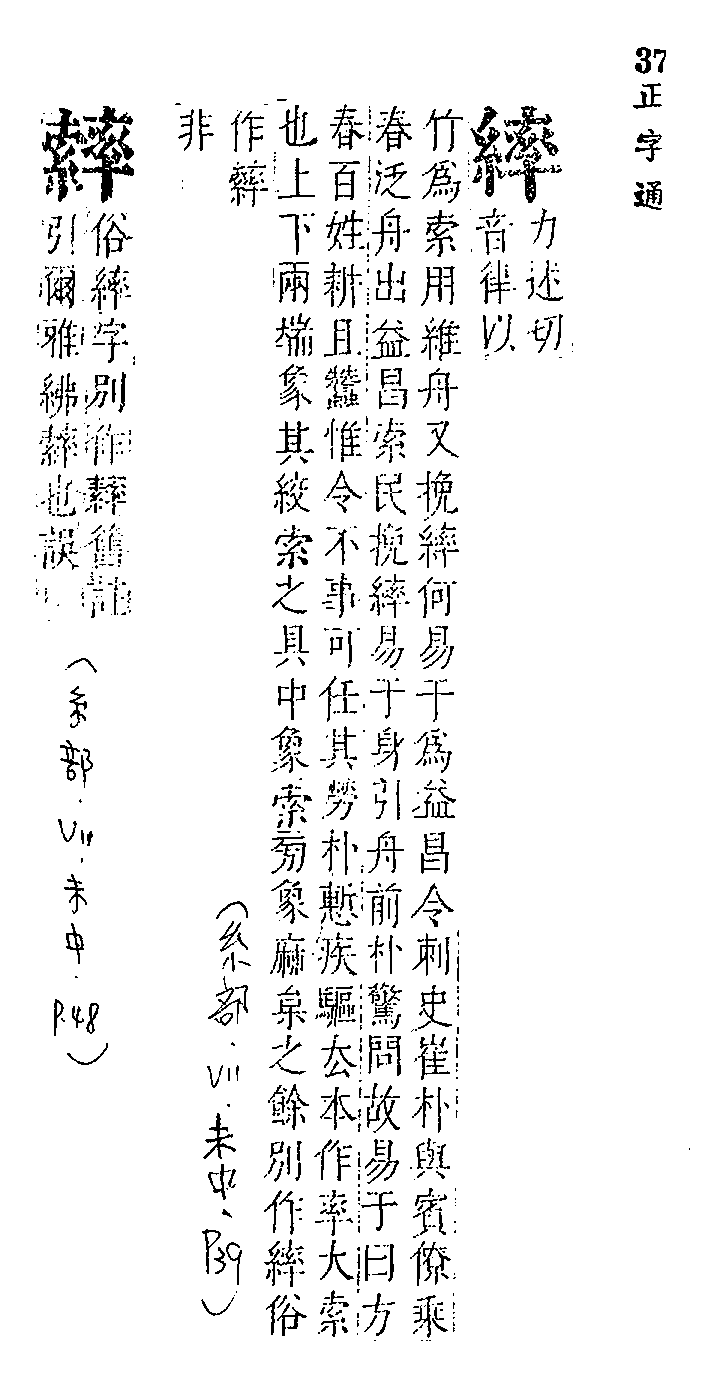 37 正字通
繂
力述切
音律以
竹爲索用維舟又挽繂何易于爲益昌令刺史崔朴與賓僚乘
春泛舟出益昌索民挽繂易于身引舟前朴驚問故易于曰方
春百姓耕且蠶惟令不事可任其勞朴慙疾驅厺本作率大索
也上下兩端象其絞索之具中象索㫄象麻枲之餘別作繂俗
作
非
(糸部.VII.未中、P39)
俗繂字別作舊註
引爾雅紼也誤
(糸部.VII.未中.P.48)